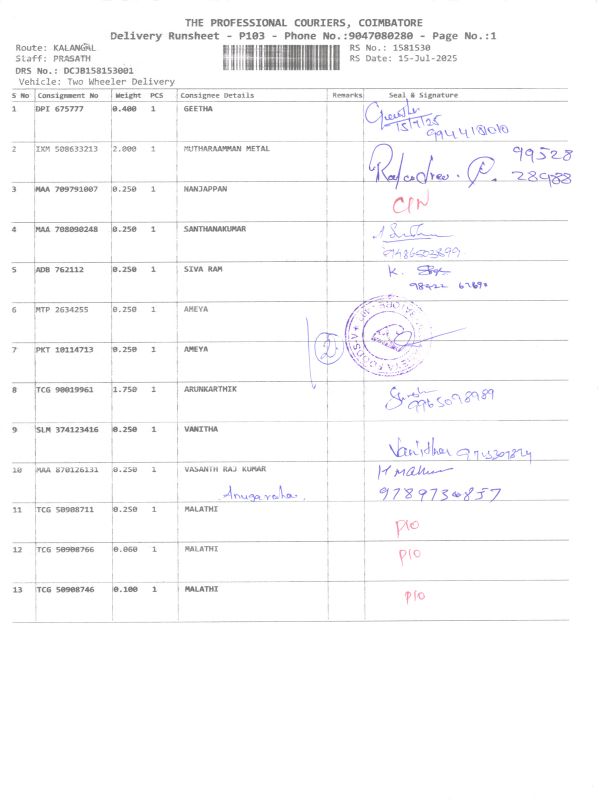 THE PROFESSIONAL COURIERS, COIMBATORE
Delivery Runsheet - P103 - Phone No.:9047080280 - Page No.:1
Route: KALANGAL RS No.: 1581530
Staff: PRASATH RS Date: 15-Jul-2025
DRS No.: DCJB158153001
Vehicle: Two Wheeler Delivery
S No Consignment No Weight PCS Consignee Details Remarks Seal & Signature
1 DPI 675777 0.400 1 GEETHA
15/7/25
2 IXM 508633213 2.000 1 MUTHARAAMMAN METAL 99528
28988
3 MAA 709791007 0.250 1 NANJAPPAN
4 MAA 708090248 0.250 1 SANTHANAKUMAR
9486503899
5 ADB 762112 0.250 1 SIVA RAM K.
6 MTP 2634255 0.250 1 AMEYA
2
7 PKT 10114713 0.250 1 AMEYA
8 TCG 90019961 1.750 1 ARUNKARTHIK
9965098989
9 SLM 374123416 0.250 1 VANITHA
10 MAA 870126131 0.250 1 VASANTH RAJ KUMAR
9789730857
11 TCG 50908711 0.250 1 MALATHI P10
12 TCG 50908766 0.060 1 MALATHI P10
13 TCG 50908746 0.100 1 MALATHI P10